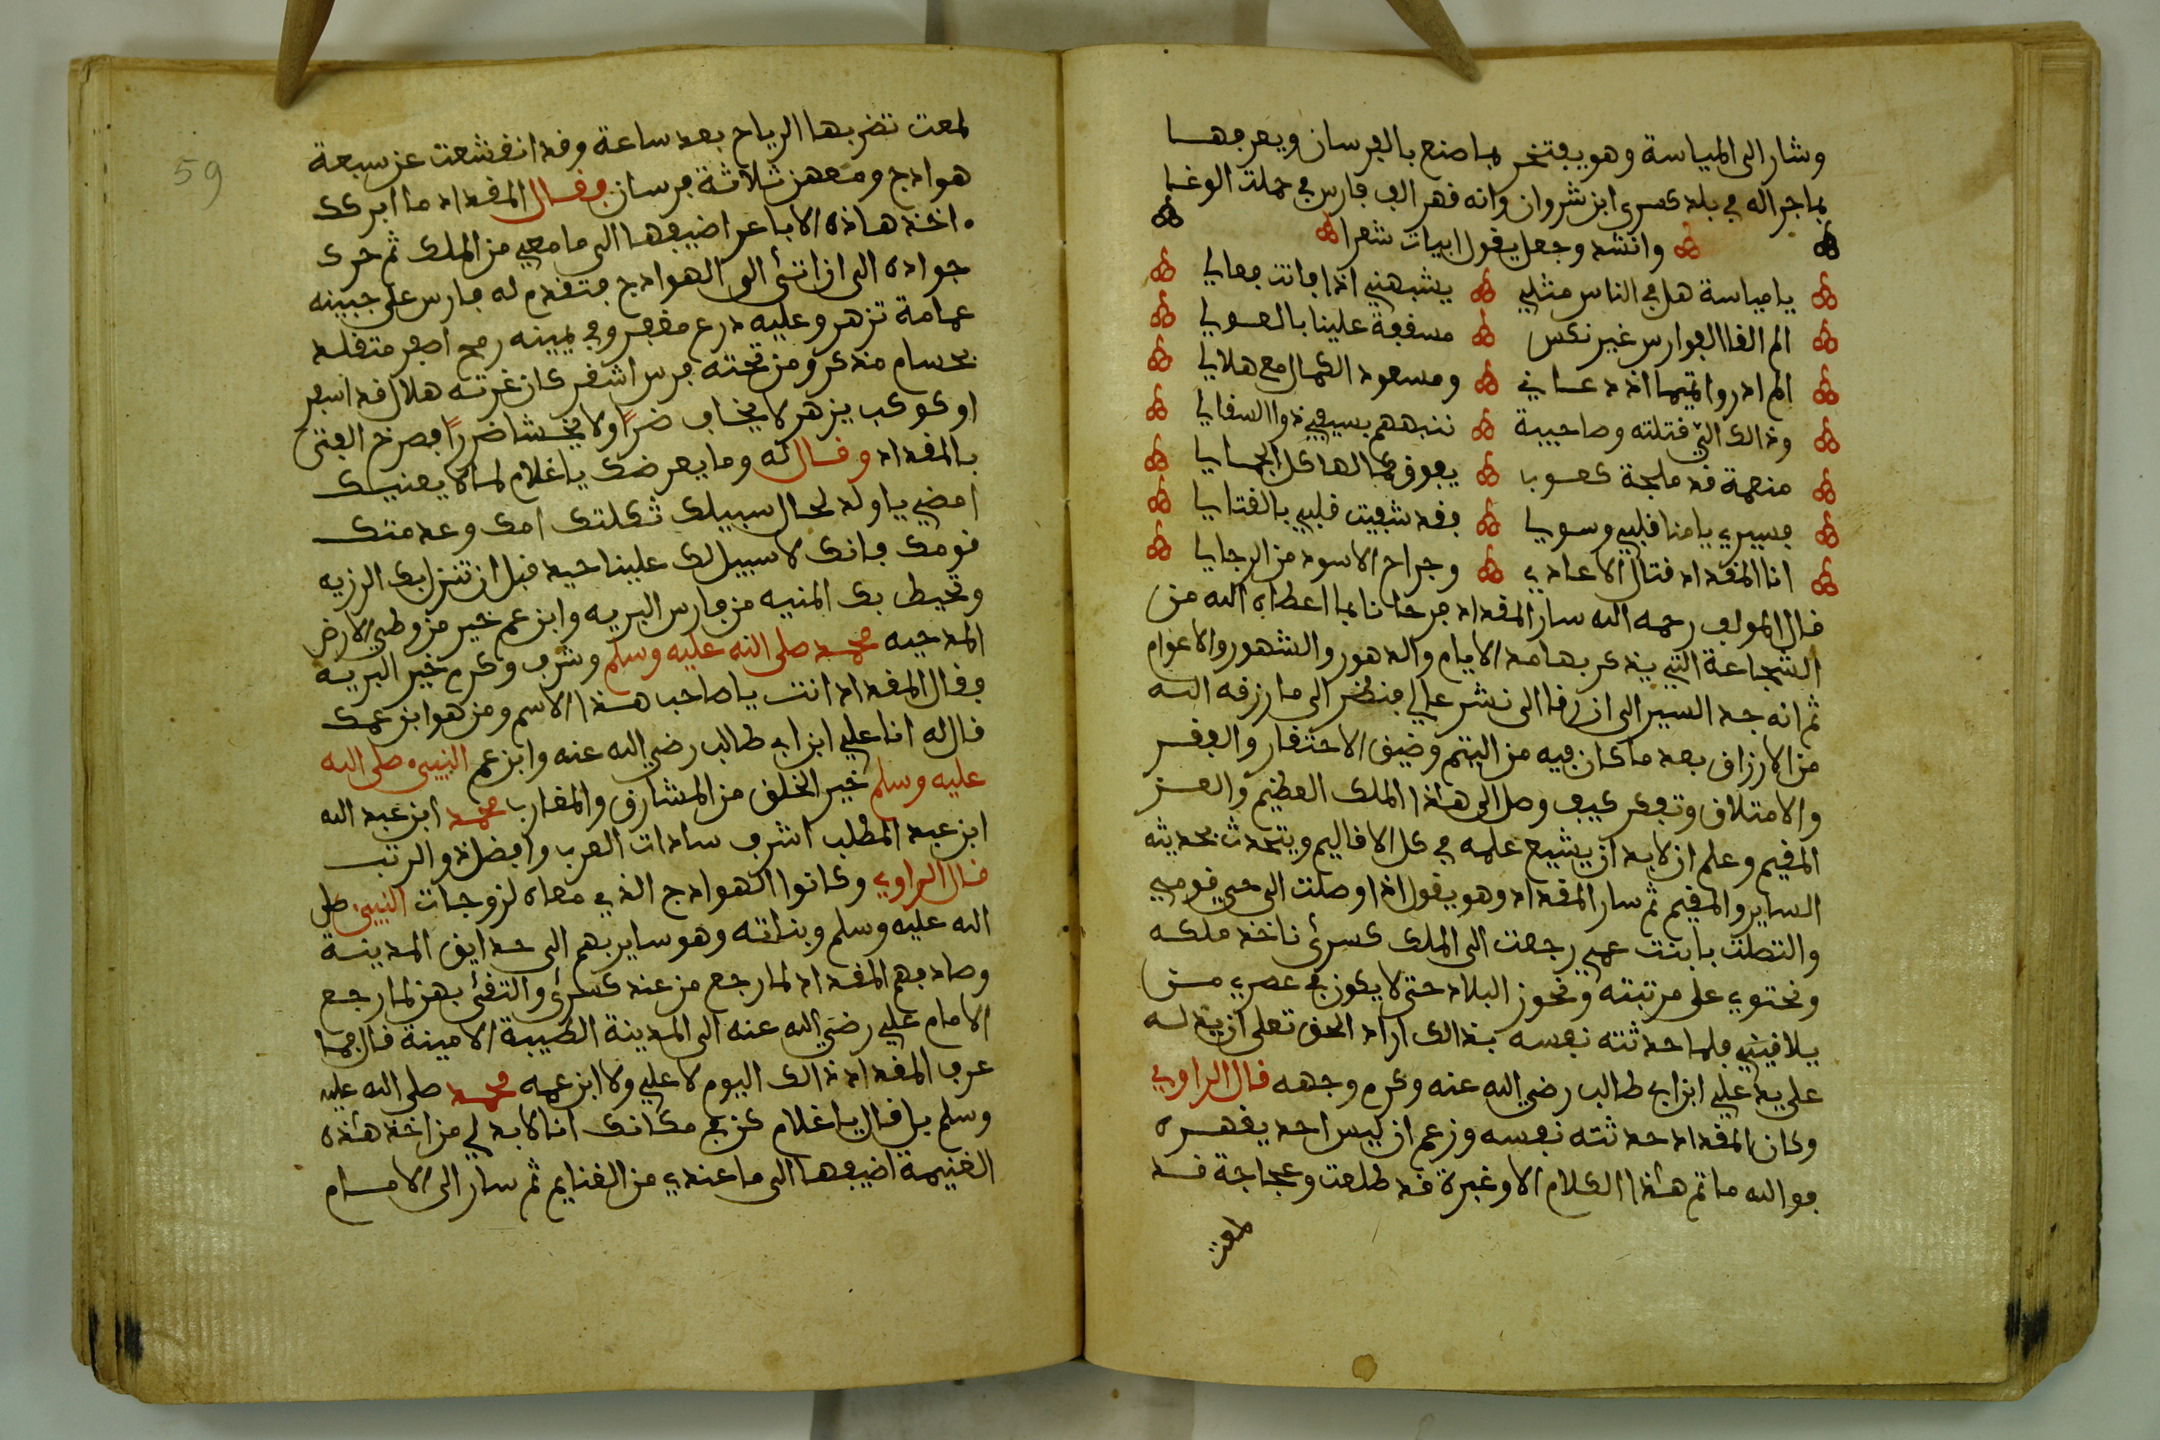 وشار الى المياسة وهو يفتخر بما صنع بالفرسان ويعرفها
بما جراله في بلد كسرى ابن شروان وانه قهر الف فارس في حملت الوغا
وانشد وجعل يقول ابيات شعرا
يا مياسة هل في الناس مثلي يشبهني اذا فانت فعالي
الم القا الفوارس غير نكس مسفعة علينا بالعوالي
ومسعود الكمال مع هلالي
وذالك التي قتلته وصاحبية ننبههم بسيفي ذوا السقالي
يفوق كمالها كل الجمالي
فسيري يا منا قلبي وسولي فقد شفيت قلبي بالقتالي
انا المقداد قتال الاعادي وجراح الاسود من الرجالي
قال المولف رحمه الله سار المقداد فرحانا بما اعطاه الله من
الشجاعة التي يذكر بها مدا الايام والدهور والشهور والاعوام
ثم انه جد السير الى ان رقا الى نشر عالي فنظر الى ما رزقه الله
من الارزاق بعد ما كان فيه من اليتم وضيق الاحتقار والفقر
والامتلاق وتفكر كيف وصل الى هذا الملك العظيم والعز
المقيم وعلم ان لابد ان يشيع علمه في كل الاقاليم ويتحدث بحديثه
الساير والمقيم ثم سار المقداد وهو يقول اذا وصلت الى حي قومي
والتصلت بابنت عمي رجعت الى الملك كسرى ناخذ ملكه
ونحتوي على مرتبته ونحوز البلاد حتى لا يكون في عصري من
يلاقيني فلما حدثته نفسه بذالك اراد الحق تعلى ان يذله
على يد علي ابن ابي طالب رضي الله عنه وكرم وجهه قال الراوي
وكان المقداد حدثته نفسه وزعم ان ليس احد يقهره
فوالله ما تم هذا الكلام الا وغبرة قد طلعت وعجاجة قد
لمعت
59
لمعت تضربها الرياح بعد ساعة وقد انقشعت عن سبعة
هوادج ومعهن ثلاثة فرسان فقال المقداد ما ابركك
اخذ هاذه الاباعر اضيفها الى ما معي من الملك ثم حرك
جواده الى ان اتى الى الهوادج فتقدم له فارس على جبينه
عمامة تزهر وعليه درع مغفر وفي يمينه رمح اصفر متقلد
بحسام مذكر ومن تحته فرس اشقر كان غرته هلال قد اسفر
او كوكب يزهر لا يخاف ضرا ولا يخشا ضررا فصرخ الفتى
بالمقداد وقال له وما يعرضك يا غلام لما لا يعنيك
امضي يا ولد لحال سبيلك ثكلتك امك وعدمتك
قومك فانك لا سبيل لك علينا حيد قبل ان تنزل بك الرزيه
وتحيط بك المنيه من فارس البريه وابن عم خير من وطي الارض
المدحيه محمد صلى الله عليه وسلم وشرف وكرم خير البريه
فقال المقداد انت يا صاحب هذا الاسم ومن هو ابن عمك
قال له انا علي ابن ابي طالب رضي الله عنه وابن عم النبيء صلى الله
عليه وسلم خير الخلق من المشارق والمغارب محمد ابن عبد الله
ابن عبد المطلب اشرف سادات العرب وافضل ذو الرتب
قال الراوي وكانوا الهوادج الذي معاه لزوجات النبيء صلى
الله عليه وسلم وبناته وهو ساير بهم الى حدايق المدينة
وصادفهم المقداد لما رجع من عند كسرى والتقى بهن لما رجع
الامام علي رضي الله عنه الى المدينة الطيبة الامينة قال فما
عرف المقداد ذالك اليوم لا علي ولا ابن عمه محمد صلى الله عليه
وسلم بل قال يا غلام كن في مكانك انا لابد لي من اخذ هذه
الغنيمة اضيفها الى ما عندي من الغنايم ثم سار الى الامام